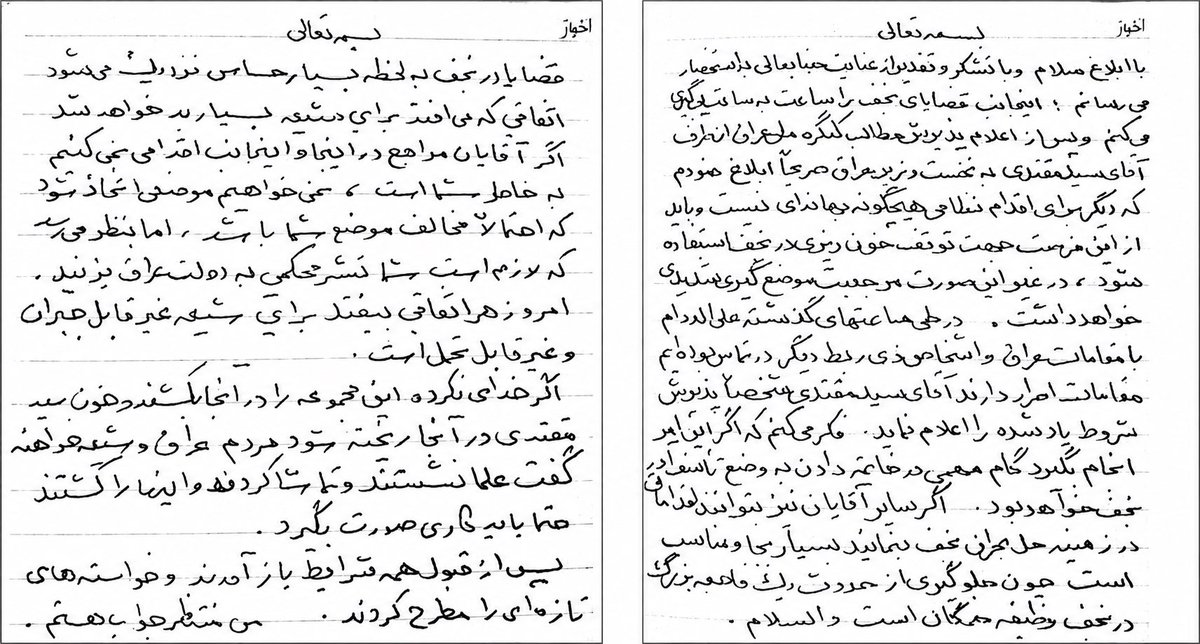 اخبار
بسمه تعالی
با ابلاغ سلام و با تشکر و تقدیر از عنایت جنابعالی به استحضار
می رسانم ؛ اینجانب قضایای نجف را ساعت به ساعت پیگیری
می کنم و پس از اعلام پذیرش مطالب کنگره ملی عراق از طرف
آقای سید مقتدی به نخست وزیر عراق صریحاً ابلاغ نمودم
که دیگر برای اقدام نظامی هیچگونه بهانه ای نیست و باید
از این فرصت جهت توقف خون ریزی در نجف استفاده
شود ، در غیر این صورت مرجعیت موضع گیری شدیدی
خواهد داشت . در طی ساعتهای گذشته علی الدوام
با مقامات عراق و اشخاص ذی ربط دیگر در تماس بوده ایم
مقامات اصرار دارند آقای سید مقتدی شخصاً پذیرش
شروط یاد شده را اعلام نماید . فکر می کنم که اگر این امر
انجام بگیرد گام مهمی در خاتمه دادن به وضع تأسف آور
نجف خواهد بود . اگر سایر آقایان نیز بتوانند اقداماتی
در زمینه حل بحرانی نجف بنمایند بسیار بجا و مناسب
است چون جلوگیری از حدوث یک فاجعه بزرگ
در نجف وظیفه همگان است و السلام .
اخبار
بسمه تعالی
قضایا در نجف به لحظه بسیار حساس نزدیک می شود
اتفاقی که می افتد برای شیعه بسیار بد خواهد شد
اگر آقایان مراجع در اینجا و اینجانب اقدامی نمی کنیم
به خاطر شما است ، نمی خواهیم موضعی اتخاذ شود
که احتمالاً مخالف موضع شما باشد ، اما بنظر می رسد
که لازم است شما تشر محکمی به دولت عراق بزنید .
امروز هر اتفاقی بیفتد برای شیعه غیر قابل جبران
و غیر قابل تحمل است .
اگر خدای نکرده این مجموعه را در آنجا بکشند و خون سید
مقتدی در آنجا ریخته شود مردم عراق و شیعه خواهند
گفت علما نشستند و تماشا کردند و اینها را کشتند
حتما باید کاری صورت بگیرد .
پس از قبول همه شرایط باز آمدند و خواسته های
تازه ای را مطرح کردند . من منتظر جواب هستم .